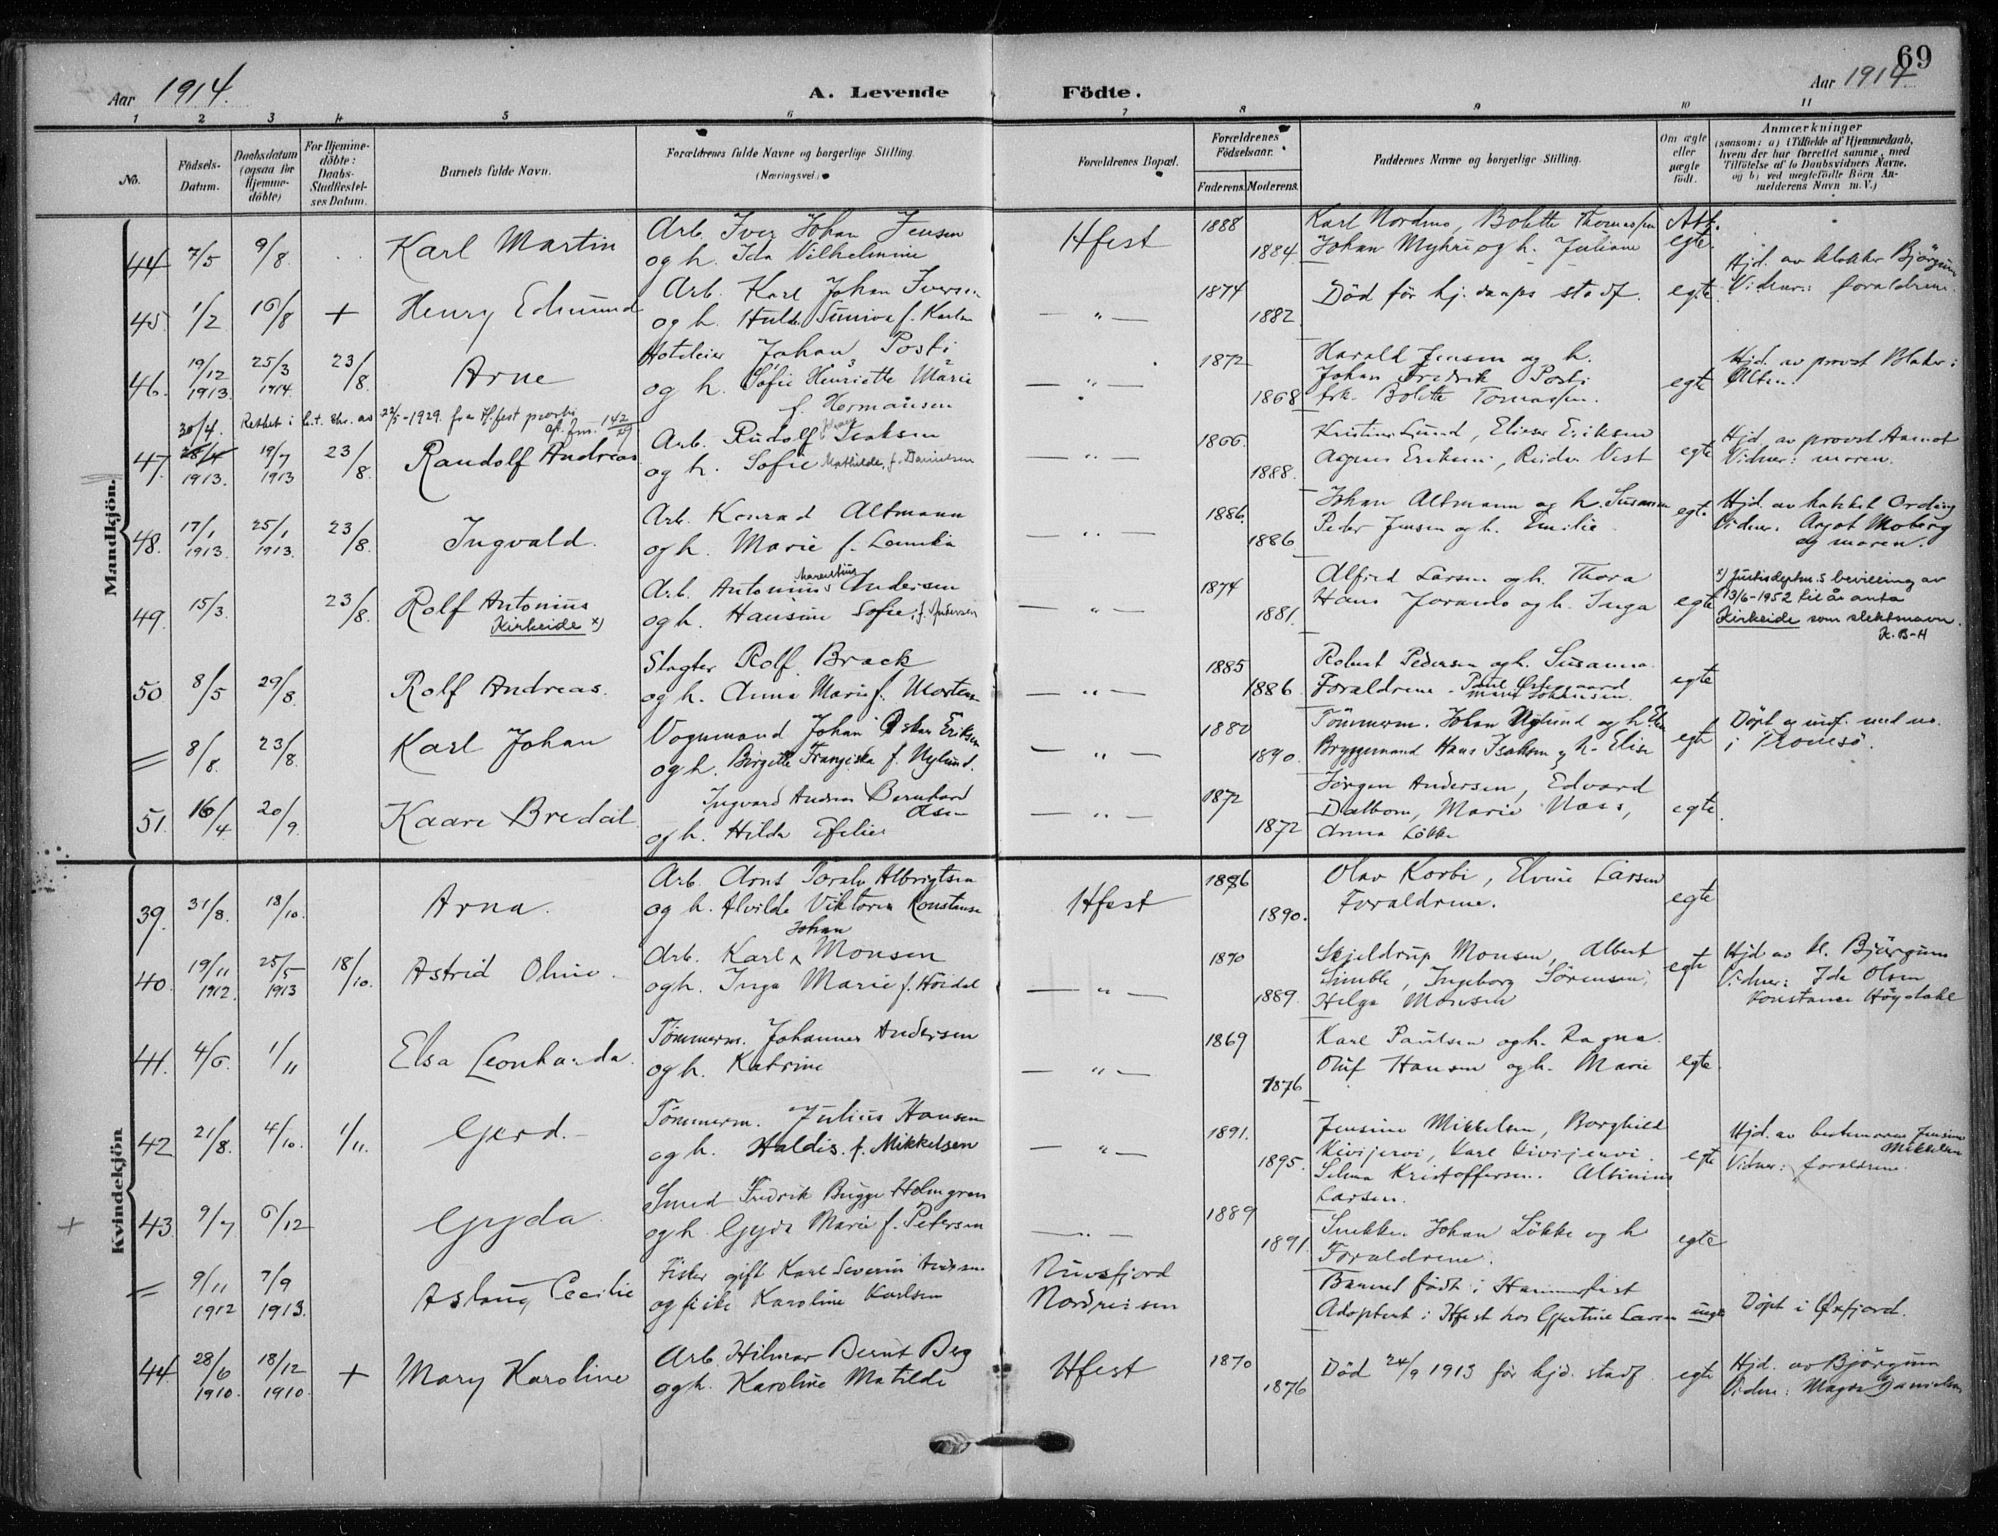 69
Aar 1914. A. Levende Födte. Aar 1914.
1 2 3 4 5 6 7 8 9 10 11
No.
Födsels-
Datum.
Daabsdatum
(ogsaa for
Hjemme-
döbte)
For Hjemme-
döbte:
Daabs-
Stadfæstel-
ses Datum.
Barnets fulde Navn.
Forældrenes fulde Navne og borgerlige Stilling.
(Næringsvei.)
Forældrenes Bopæl.
Forældrenes
Födselsaar.
Faderens. Moderens.
Faddernes Navne og borgerlige Stilling.
Om ægte
eller
uægte
födt.
Anmærkninger
(saasom: a) i Tilfælde af Hjemmedaab,
hvem der har forrettet samme, med
Tilföielse af to Daabsvidners Navne.
og b) ved uægtefödte Börn An-
melderens Navn m. V.)
Mandkjön.
44 7/5 9/8 Karl Martin
Arb. Iver Johan Jensen
og h. Ida Vilhelmine
Hfest 1888 1884
Karl Nordmo, Bolette Thomassen
Johan Myhre og h. Juliane
egte
45. 1/2 16/8 + Henry Edmund
Arb. Karl Johan Iversen
og h. Hulda Suniva f. Karlsen
— " — 1874 1882.
Död för hj. daaps stadf. egte
Hjd. av klokker Björgum
Vidner: foraldrene.
46. 19/12 1913. 25/3 1914. 23/8. Arne
Hoteleier Johan Posti
og h. Sofie Henriette Marie
f. Hermansen
— " — 1872 1868
Harald Jensen og h.
Johan Fredrik Posti
frk. Bolette Tomassen.
egte
Hjd. av provst Blaker i
Alten.
30/4. Rettet i h.t. skr. av 22/5-1929. fra H.fest prosti
47. 28/4 1913. 19/7 1913 23/8 Randolf Andreas
Arb. Rudolf Isaksen
og h. Sofie Mathilde, f. Danielsen
— " — 1866. 1888.
Kristine Lund, Elieser Eriksen
Agnes Eriksen, Reidar Vest
egte
Hjd. av provst Aanot
Vidner: moren.
48. 17/1 1913. 25/1 1913. 23/8. Ingvald.
Arb. Konrad Altmann
og h. Marie f. Lamika
— " — 1886. 1886
Johan Altmann og h. Susanna
Peder Jensen og h. Emilie
egte
Hjd. av katekel Ording
Vidner: Aagot Moberg
og moren.
49. 15/3. 23/8. Rolf Antonius
Kirkeide x)
Arb. Antonius Andersen
og h. Hansine Sofie, f. Andersen
— " — 1874 1881.
Alfred Larsen og h. Thora
Hans Joramo og h. Inga
egte
x) Justisdeptm.s bevilling av
13/6-1952 til å anta
Kirkeide som slektsnavn.
K. B-H
50 8/5 29/8. Rolf Andreas.
Slagter Rolf Brack
og h. Anna Marie f. Morten
— " — 1885 1886
Robert Pedersen og h. Susanna.
Foraldrene. Paul Østgaard
Marie Johansen.
egte
= 8/8. 23/8. Karl Johan
Vognmand Johan Oskar Eriksen
og h. Birgitte Franziska f. Nylund.
— " — 1880 1890.
Tömmerm. Johan Nylund og h. Elen
Bryggemand Hans Isaksen og h. Elise
egte
Döpt og indf. med no.
i Tromsö.
51. 16/4 20/9. Kaare Bredal
Ingvard Andreas Bernhard
Asen
og h. Hilda Efelie
— " — 1872 1872
Jørgen Andersen, Edvard
Dalbom, Marie Næss,
Anna Løkke
egte.
Kvindekjön
39. 31/8. 18/10. Arna.
Arb. Arnt Toralv Albrigtsen
og h. Alvilde Viktoria Konstanse
Hfest 1886 1890.
Olav Korbi, Elvine Larsen
Foraldrene.
egte
40. 19/11 1912. 25/5 1913 18/10. Astrid Oline.
Johan
Arb. Karl Monsen
og h. Inga Marie f. Hoidal
— " — 1890 1889.
Skjeldrup Monsen, Albert
Simble, Ingeborg Sørensen,
Helga Monsen
egte
Hjd av kl. Björgum
Vidner: Ida Olsen
Konstance Högdahl
41. 4/6. 1/11 Elsa Leonharda.
Tömmerm. Johannes Andersen
og h. Katrine
— " — 1869 1876
Karl Paulsen og h. Ragna.
Oluf Hansen og h. Marie
egte.
42 21/8. 4/10. 1/11. Gerd.
Tömmerm. Julius Hansen
og h. Haldis. f. Mikkelsen
— " — 1891. 1895.
Jensine Mikkelsen, Borghild
Kivijervi, Karl Kivijervi.
Selma Kristoffersen. Albinius
Larsen.
egte
Hjd. av bestemoren Jensine
Mikkelsen
Vidner: foraldrene.
+ 43 9/7 6/12 Gyda
Smed Fredrik Bugge Holmgren
og h. Gyda Marie f. Petersen
— " — 1889 1891.
Snekker Johan Løkke og h
Foraldrene.
egte
= 9/11 1912 7/9 1913. Aslaug Cecilie
Fisker gift Karl Severin Andersen
og pike Karoline Karlsen
Nuvsfjord
Nordreisen
Barnet födt i Hammerfest
Adoptert i Hfest hos Gjertine Larsen uegte
Döpt i Øxfjord.
44. 28/6 1910. 18/12 1910. + Mary Karoline
Arb. Hilmar Bernt Berg
og h. Karoline Matilde
Hfest 1870 1876
Död 24/9 1913 för hjd. stadf. egte
Hjd. av Björgum
Vidne: Magda Danielsen